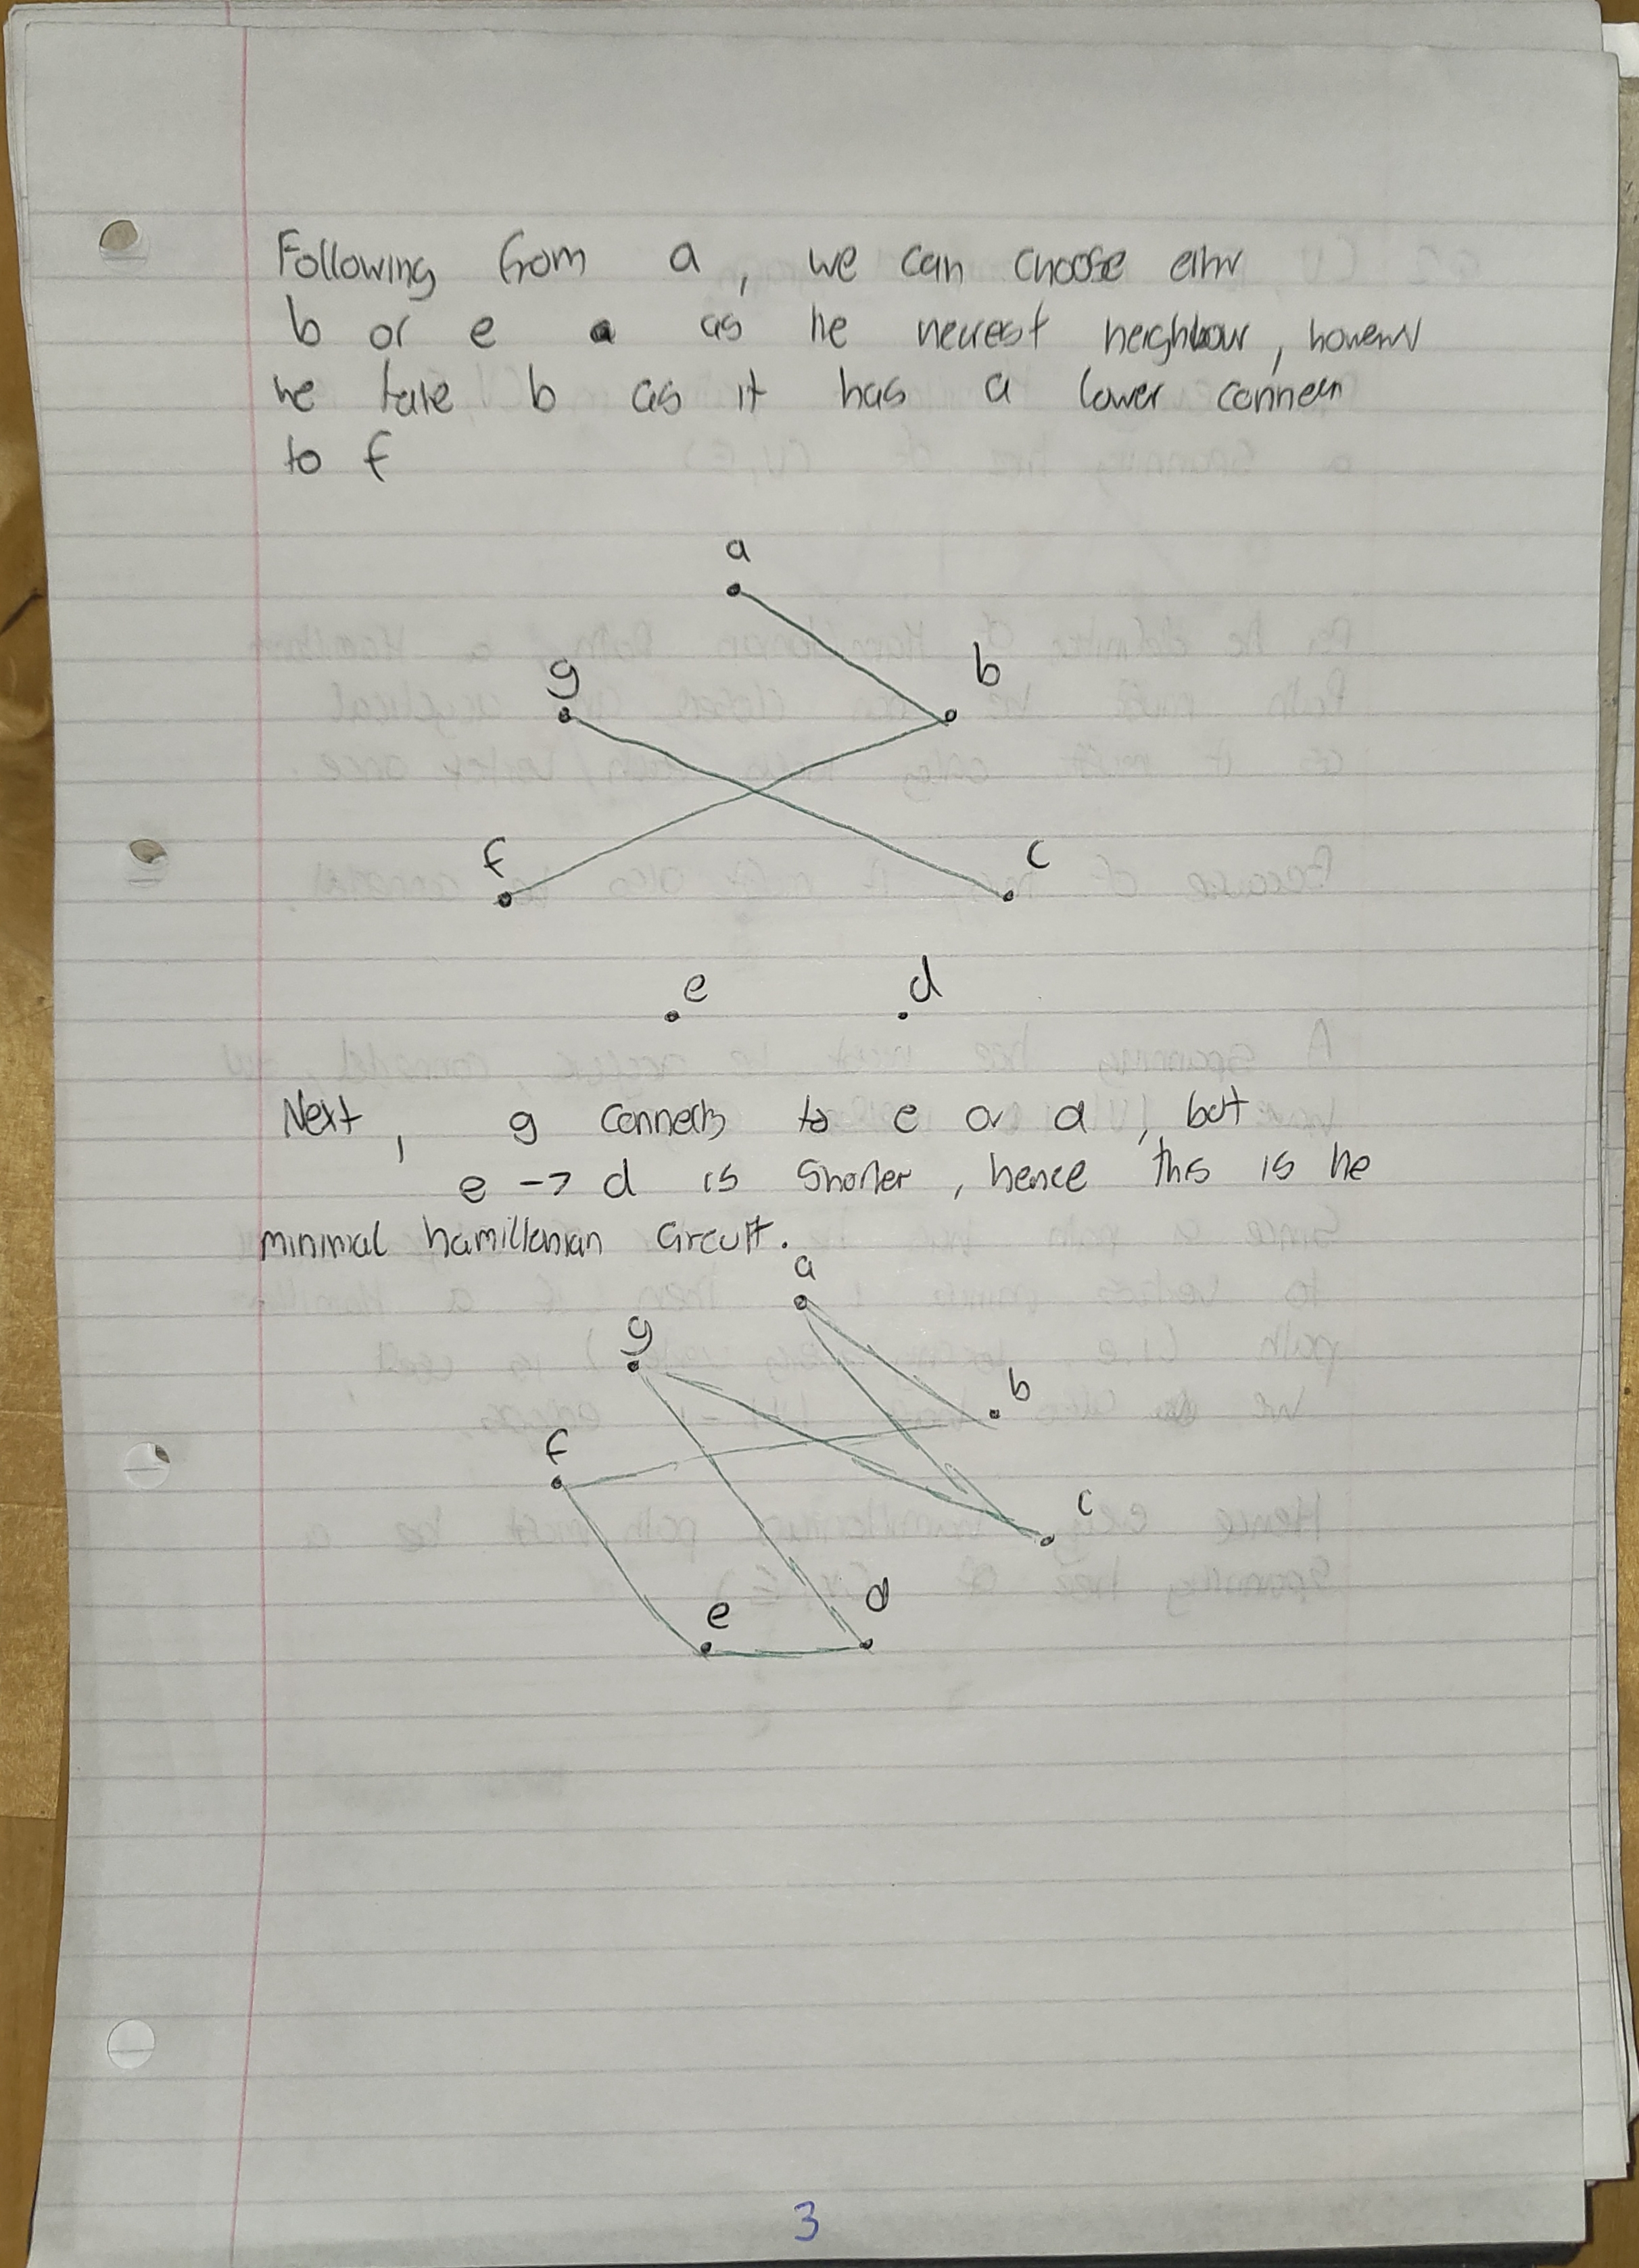 Following from a, we can choose eihr
b or e as he nearest neighbour, however
he take b as it has a lower connecn
to f
a
g
b
f
c
e
d
Next, g connects to e or d, but
e -> d is shorter, hence this is he
minimal hamiltonian circuit.
a
g
b
f
c
e
d
3